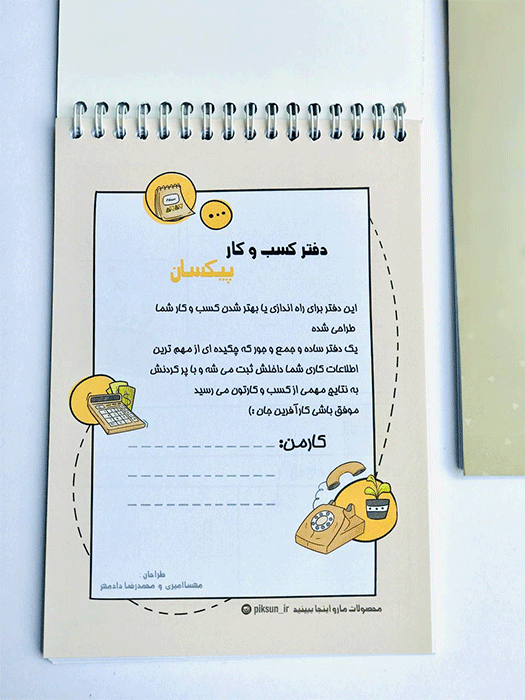 دفتر کسب و کار
پیکسان
این دفتر برای راه اندازی یا بهتر شدن کسب و کار شما
طراحی شده
یک دفتر ساده و جمع و جور که چکیده ای از مهم ترین
اطلاعات کاری شما داخلش ثبت می شه و با پر کردنش
به نتایج مهمی از کسب و کارتون می رسید
موفق باشی کارآفرین جان :)
کارمن:
طراحان :
مهسا امیری و محمدرضا دادمهر
محصولات مارو اینجا ببینید piksun_ir